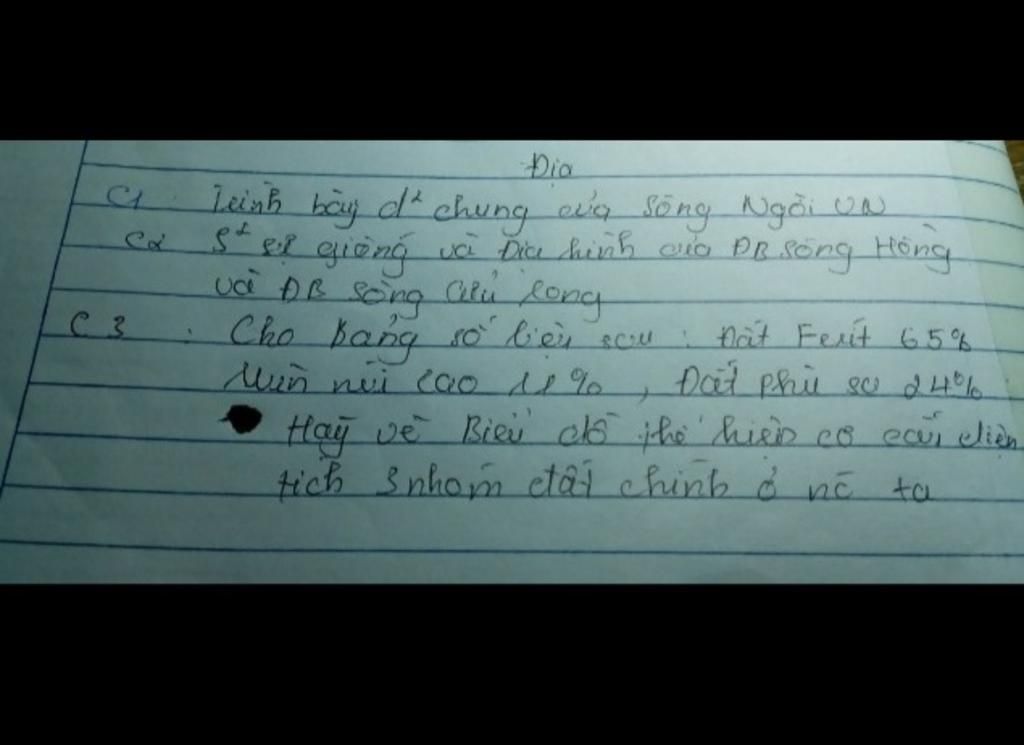 Địa
C1 Trình bày đ² chung của Sông Ngòi VN
C2 S² sự giống và Địa hình của ĐB sông Hồng
và ĐB sông Cửu Long
C3 : Cho Bảng số liệu sau : Đất Feralit 65%
Mùn núi cao 11%, Đất phù sa 24%
Hãy vẽ Biểu đồ thể hiện cơ cấu diện
tích 3 nhóm đất chính ở nc ta